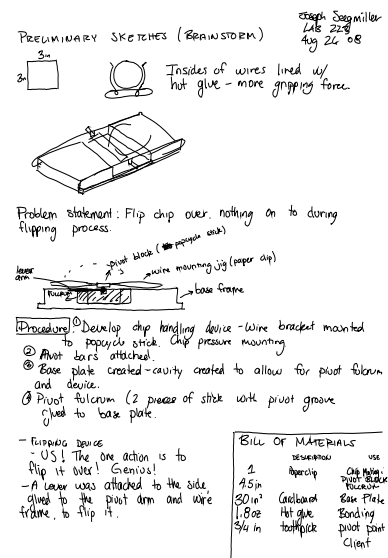 Joseph Seegmiller
LAB 228
Aug 26 08
PRELIMINARY SKETCHES (BRAINSTORM)
3in
3in
Insides of wires lined w/
hot glue - more gripping force.
Problem statement: Flip chip over. nothing on to during
flipping process.
pivot block (popcycle stick)
wire mounting jig (paper clip)
lever
arm
FULCRUM
base frame
Procedure: ① Develop chip handling device - wire bracket mounted
to popcycle stick. Chip pressure mounting
② Pivot bars attached.
③ Base plate created - cavity created to allow for pivot fulcrum
and device.
④ Pivot fulcrum (2 pieces of stick with pivot groove
glued to base plate.
- FLIPPING DEVICE
- US! The one action is to
flip it over! Genius!
- A Lever was attached to the side
glued to the pivot arm and wire
frame, to flip it.
BILL OF MATERIALS
DESCRIPTION USE
1 Paperclip Chip
4.5 in PIVOT BLOCK
FULCRUM
30 in² Cardboard Base Plate
1.8 oz Hot glue Bonding
3/4 in toothpick pivot point
Client